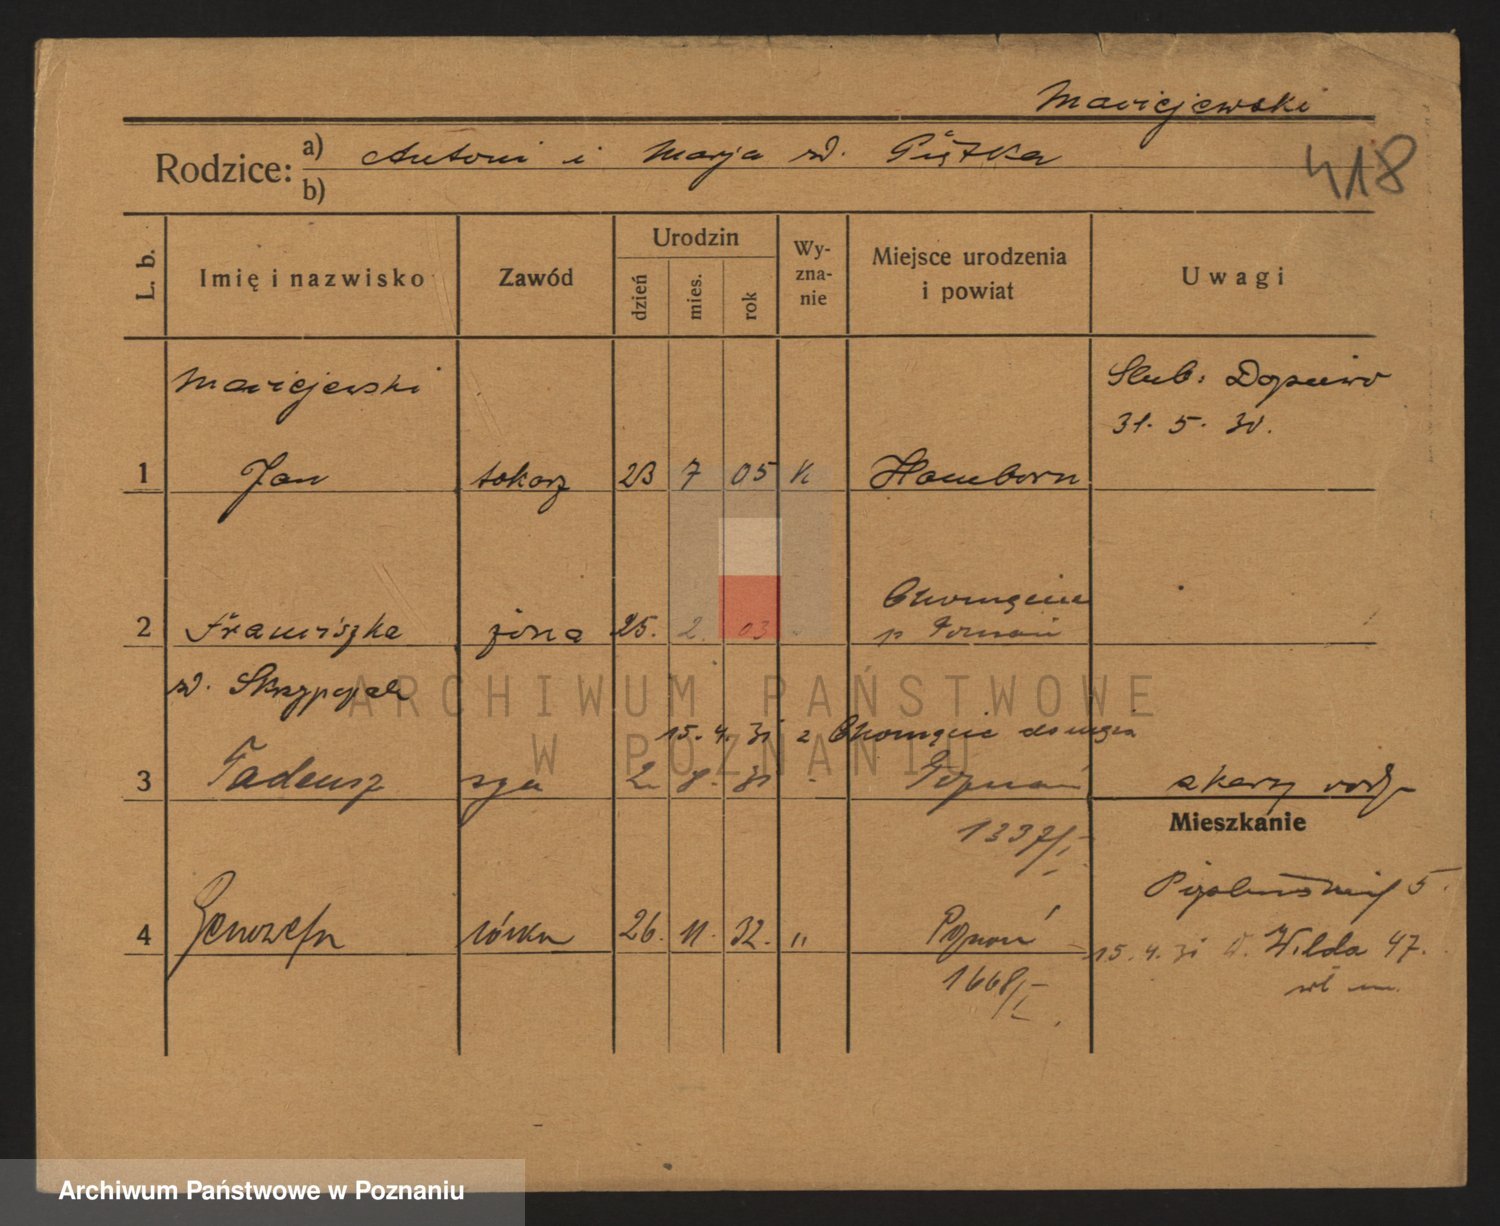 Maciejewski
Rodzice: a) Antoni i Marja zd. Piątka
b)
418
L. b.
Imię i nazwisko
Zawód
Urodzin
dzień
mies.
rok
Wy-
zna-
nie
Miejsce urodzenia
i powiat
Uwagi
Maciejewski
Ślub: Dopiewo
31. 5. 30.
1 Jan tokarz 23 7 05 k Hamborn
Chomęcice
2 Franciszka żona 25. 2. 03 " p Poznań
zd. Skrzypczak
15. 4. 31 z Chomęcic do męża
3 Tadeusz syn 2. 8. 31 " Poznań
1337/I
Mieszkanie
5.
4 Genowefa córka 26. 11. 32. " Poznań
1668/I
15. 4. 31 Wilda 47.
ARCHIWUM PAŃSTWOWE
W POZNANIU
Archiwum Państwowe w Poznaniu